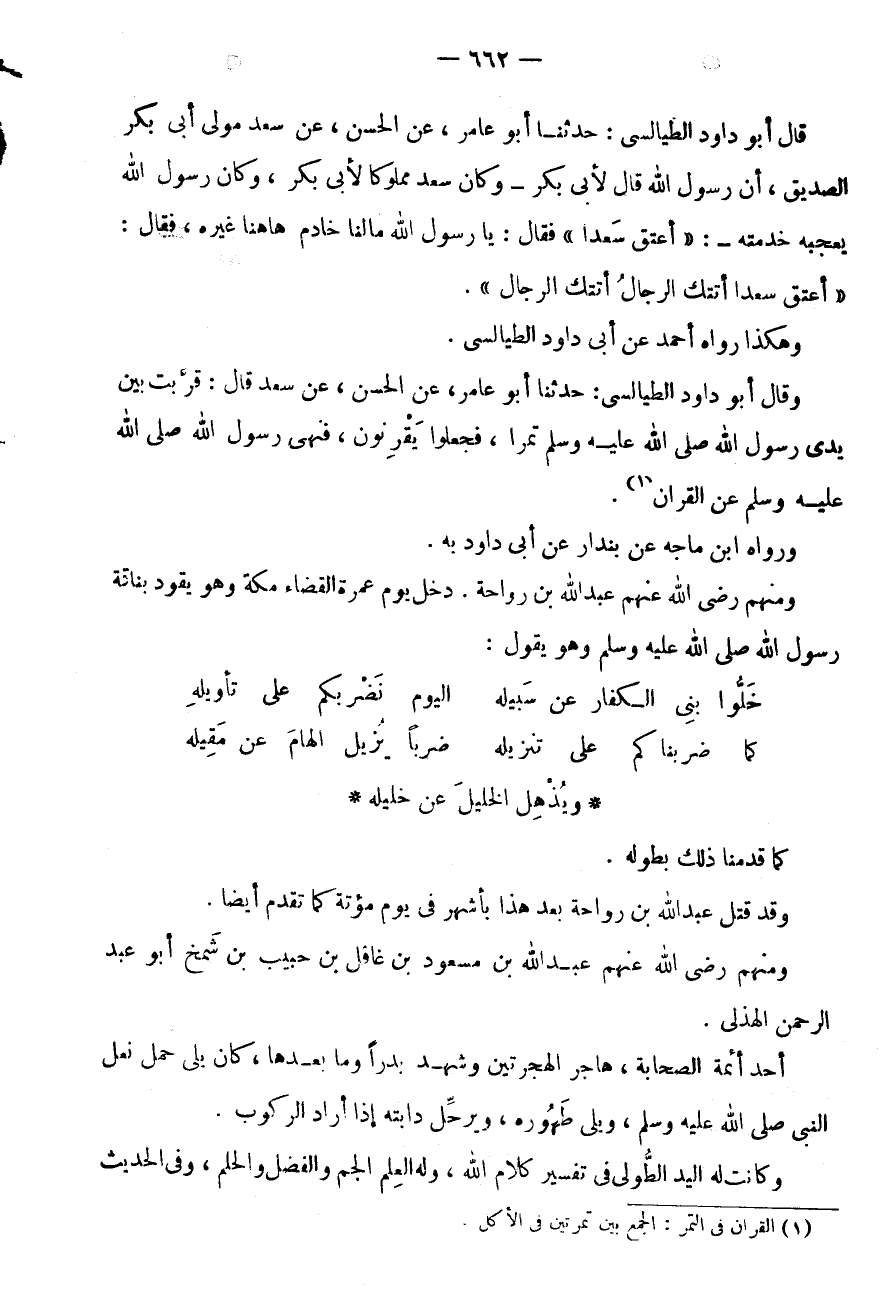 — ٦٦٢ —
قال أبو داود الطيالسى : حدثنـا أبو عامر ، عن الحسن ، عن سعد مولى أبى بكر
الصديق ، أن رسول الله قال لأبى بكر ـ وكان سعد مملوكا لأبى بكر ، وكان رسول الله
يعجبه خدمته ـ : « أعتق سَعدا » فقال : يا رسول الله مالنا خادم هاهنا غيره ، فقال :
« أعتق سعدا أتتك الرجالُ أتتك الرجال » .
وهكذا رواه أحمد عن أبى داود الطيالسى .
وقال أبو داود الطيالسى : حدثنا أبو عامر ، عن الحسن ، عن سعد قال : قرَّبت بين
يدى رسول الله صلى الله عليـه وسلم تمرا ، فجعلوا يَقْرِنون ، فنهى رسول الله صلى الله
عليـه وسلم عن القران (١) .
ورواه ابن ماجه عن بندار عن أبى داود به .
ومنهم رضى الله عنهم عبدالله بن رواحة . دخل يوم عمرة القضاء مكة وهو يقود بناقة
رسول الله صلى الله عليه وسلم وهو يقول :
خَلُّوا بنِى الـكفار عن سَبيله اليوم نَضْربكم على تأويلهِ
كما ضربناكم على تنزيله ضرباً يُزيل الهامَ عن مَقِيله
* ويُذْهِل الخليلَ عن خليله *
كما قدمنا ذلك بطوله .
وقد قتل عبدالله بن رواحة بعد هذا بأشهر فى يوم مؤتة كما تقدم أيضا .
ومنهم رضى الله عنهم عبـدالله بن مسعود بن غافل بن حبيب بن شَمخ أبو عبد
الرحمن الهذلى .
أحد أئمة الصحابة ، هاجر الهجرتين وشهـد بدراً وما بعـدها ، كان يلى حمل نعل
النبى صلى الله عليه وسلم ، ويلى طَهُوره ، ويرحِّل دابته إذا أراد الركوب .
وكانت له اليد الطُّولى فى تفسير كلام الله ، وله العِلم الجم والفضل والحلم ، وفى الحديث
(١) القران فى التمر : الجمع بين تمرتين فى الأكل .